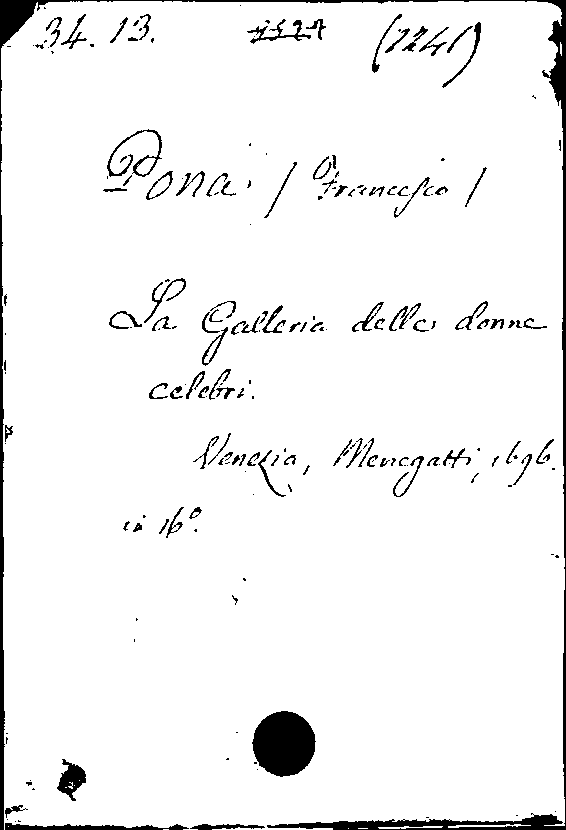 34. 13. (1241)
Pona / Francesco /
La Galleria delle donne
celebri.
Venezia, Menegatti, 1696.
in 16°.